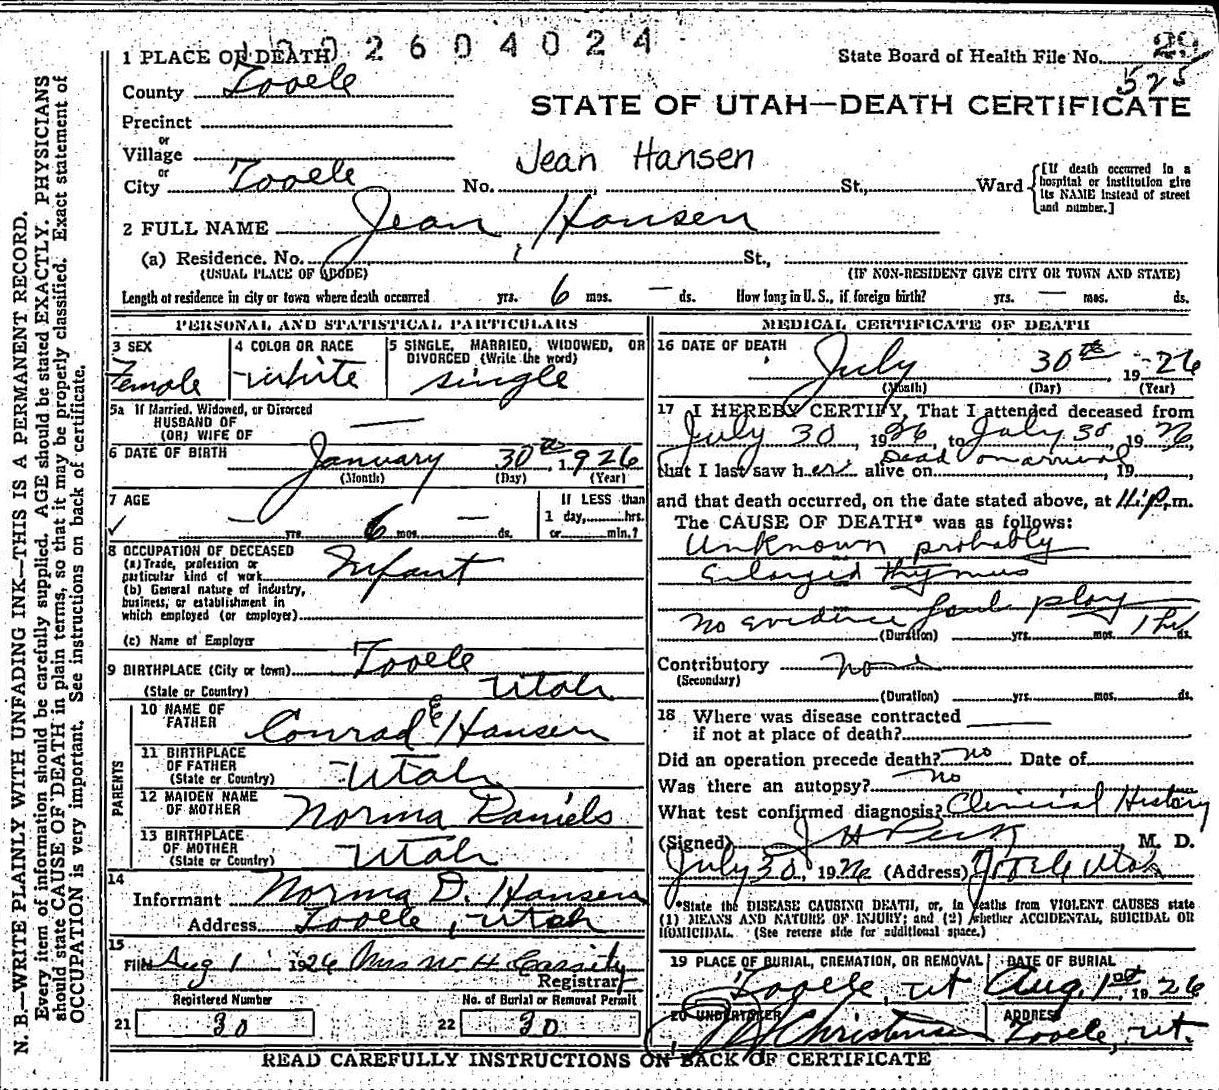 N. B.—WRITE PLAINLY WITH UNFADING INK—THIS IS A PERMANENT RECORD.
Every item of information should be carefully supplied. AGE should be stated EXACTLY. PHYSICIANS
should state CAUSE OF DEATH in plain terms, so that it may be properly classified. Exact statement of
OCCUPATION is very important. See instructions on back of certificate.
2604024
1 PLACE OF DEATH
State Board of Health File No. 29
525
County Tooele
STATE OF UTAH—DEATH CERTIFICATE
Precinct
or
Village
Jean Hansen
or
City Tooele No. St., Ward
[If death occurred in a
hospital or institution give
its NAME instead of street
and number.]
2 FULL NAME Jean Hansen
(a) Residence. No. St.,
(USUAL PLACE OF ABODE) (IF NON-RESIDENT GIVE CITY OR TOWN AND STATE)
Length of residence in city or town where death occurred yrs. 6 mos. — ds. How long in U.S., if foreign birth? yrs. — mos. ds.
PERSONAL AND STATISTICAL PARTICULARS
3 SEX
Female
4 COLOR OR RACE
White
5 SINGLE, MARRIED, WIDOWED, OR
DIVORCED (Write the word)
single
5a If Married, Widowed, or Divorced
HUSBAND OF
(OR) WIFE OF —
6 DATE OF BIRTH January 30th, 1926
(Month) (Day) (Year)
7 AGE
— yrs. 6 mos. — ds.
If LESS than
1 day, hrs.
or min.?
8 OCCUPATION OF DECEASED
(a) Trade, profession or
particular kind of work Infant
(b) General nature of industry,
business, or establishment in
which employed (or employer)
(c) Name of Employer
9 BIRTHPLACE (City or town) Tooele
(State or Country) Utah
PARENTS
10 NAME OF
FATHER Conrad E Hansen
11 BIRTHPLACE
OF FATHER
(State or Country) Utah
12 MAIDEN NAME
OF MOTHER Norma Daniels
13 BIRTHPLACE
OF MOTHER
(State or Country) Utah
14
Informant Norma D. Hansen
Address Tooele, Utah
15
Filed Aug 1 1926 Mrs W. H. Cassity
Registrar
Registered Number
21 30
No. of Burial or Removal Permit
22 30
MEDICAL CERTIFICATE OF DEATH
16 DATE OF DEATH
July 30th 19-26
(Month) (Day) (Year)
17 I HEREBY CERTIFY, That I attended deceased from
July 30, 1926, to July 30 1926,
Dead on arrival
that I last saw her alive on , 19
and that death occurred, on the date stated above, at m.
The CAUSE OF DEATH* was as follows:
Unknown probably
Enlarged thymus
No evidence foul play
(Duration) yrs. mos. 1 hr ds.
Contributory None
(Secondary)
(Duration) yrs. mos. ds.
18 Where was disease contracted
if not at place of death?
Did an operation precede death? no Date of
Was there an autopsy? no
What test confirmed diagnosis? Clinical History
(Signed) J H Peck M. D.
July 30, 1926 (Address) Tooele Utah
*State the DISEASE CAUSING DEATH, or, in deaths from VIOLENT CAUSES state
(1) MEANS AND NATURE OF INJURY; and (2) whether ACCIDENTAL, SUICIDAL OR
HOMICIDAL. (See reverse side for additional space.)
19 PLACE OF BURIAL, CREMATION, OR REMOVAL
Tooele, Ut
DATE OF BURIAL
Aug. 1st, 1926
20 UNDERTAKER
Christensen
ADDRESS
Tooele, Ut.
READ CAREFULLY INSTRUCTIONS ON BACK OF CERTIFICATE